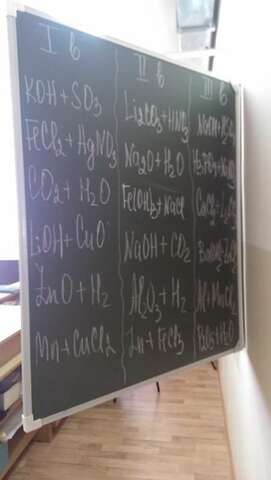 I в
KOH + SO3
FeCl2 + HgNO3
CO2 + H2O
LiOH + CuO
ZnO + H2
Mn + CuCl2
II в
Li2CO3 + HNO3
Na2O + H2O
Fe(OH)3 + NaCl
NaOH + CO2
Al2O3 + H2
Zn + FeCl3
III в
Al + MnCl2
P2O5 + H2O